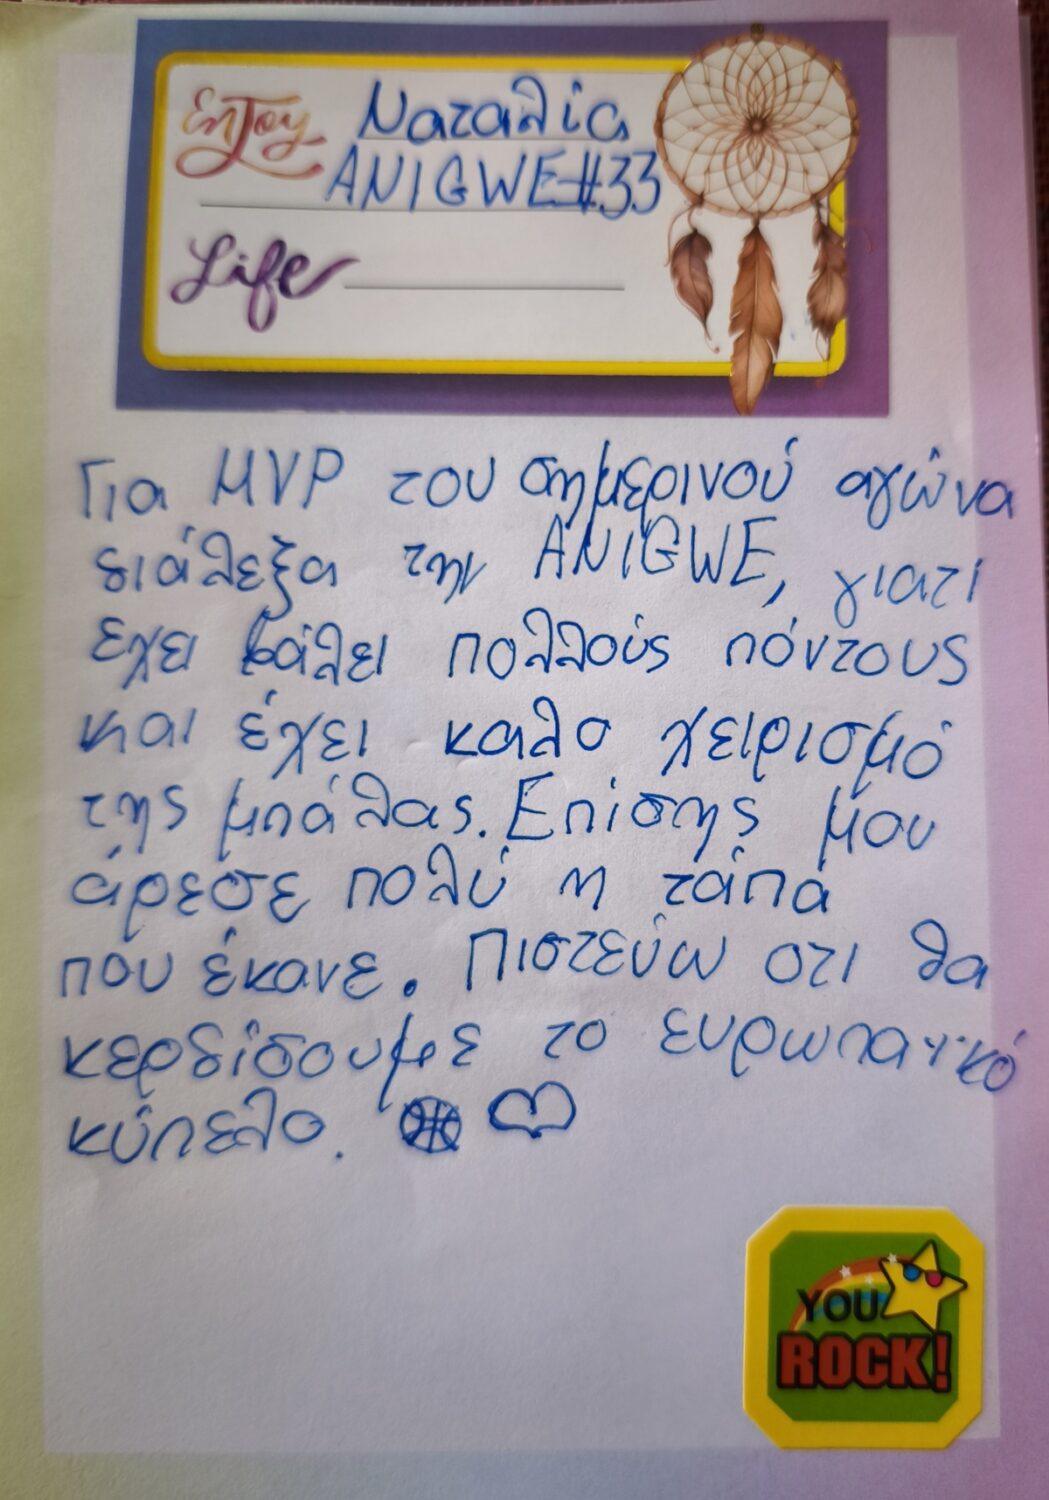 Enjoy Ναταλία
ANIGWE #33
Life
Για MVP του σημερινού αγώνα
διάλεξα την ANIGWE, γιατί
έχει βάλει πολλούς πόντους
και έχει καλο χειρισμό
της μπάλας. Επίσης μου
άρεσε πολύ η τάπα
που έκανε. Πιστεύω οτι θα
κερδίσουμε το ευρωπαικό
κύπελο.
YOU
ROCK!